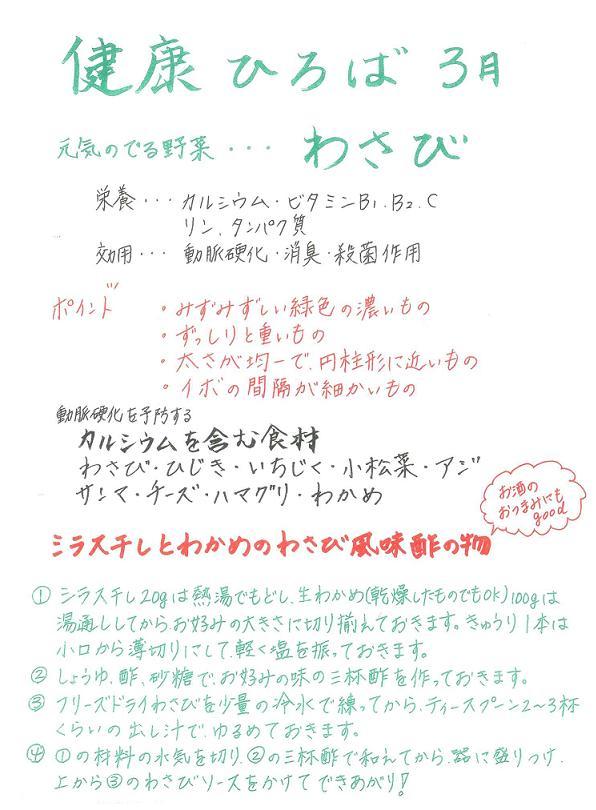 健康ひろば 3月
元気のでる野菜・・・ わさび
栄養・・・カルシウム・ビタミンB1.B2.C
リン、タンパク質
効用・・・動脈硬化・消臭・殺菌作用
ポイント ・みずみずしい緑色の濃いもの
・ずっしりと重いもの
・太さが均一で、円柱形に近いもの
・イボの間隔が細かいもの
動脈硬化を予防する
カルシウムを含む食材
わさび・ひじき・いちじく・小松菜・アジ
サンマ・チーズ・ハマグリ・わかめ
お酒の
おつまみにも
good
ミラス干しとわかめのわさび風味酢の物
① シラス干し20gは熱湯でもどし、生わかめ(乾燥したものでもOK)100gは
湯通ししてからお好みの大きさに切り揃えておきます。きゅうり1本は
小口から薄切りにして、軽く塩を振っておきます。
② しょうゆ、酢、砂糖で、お好みの味の三杯酢を作っておきます。
③ フリーズドライわさびを少量の冷水で練ってから、ティースプーン2〜3杯
くらいの出し汁で、ゆるめておきます。
④ ①の材料の水気を切り、②の三杯酢で和えてから、器に盛りつけ、
上から③のわさびソースをかけてできあがり!